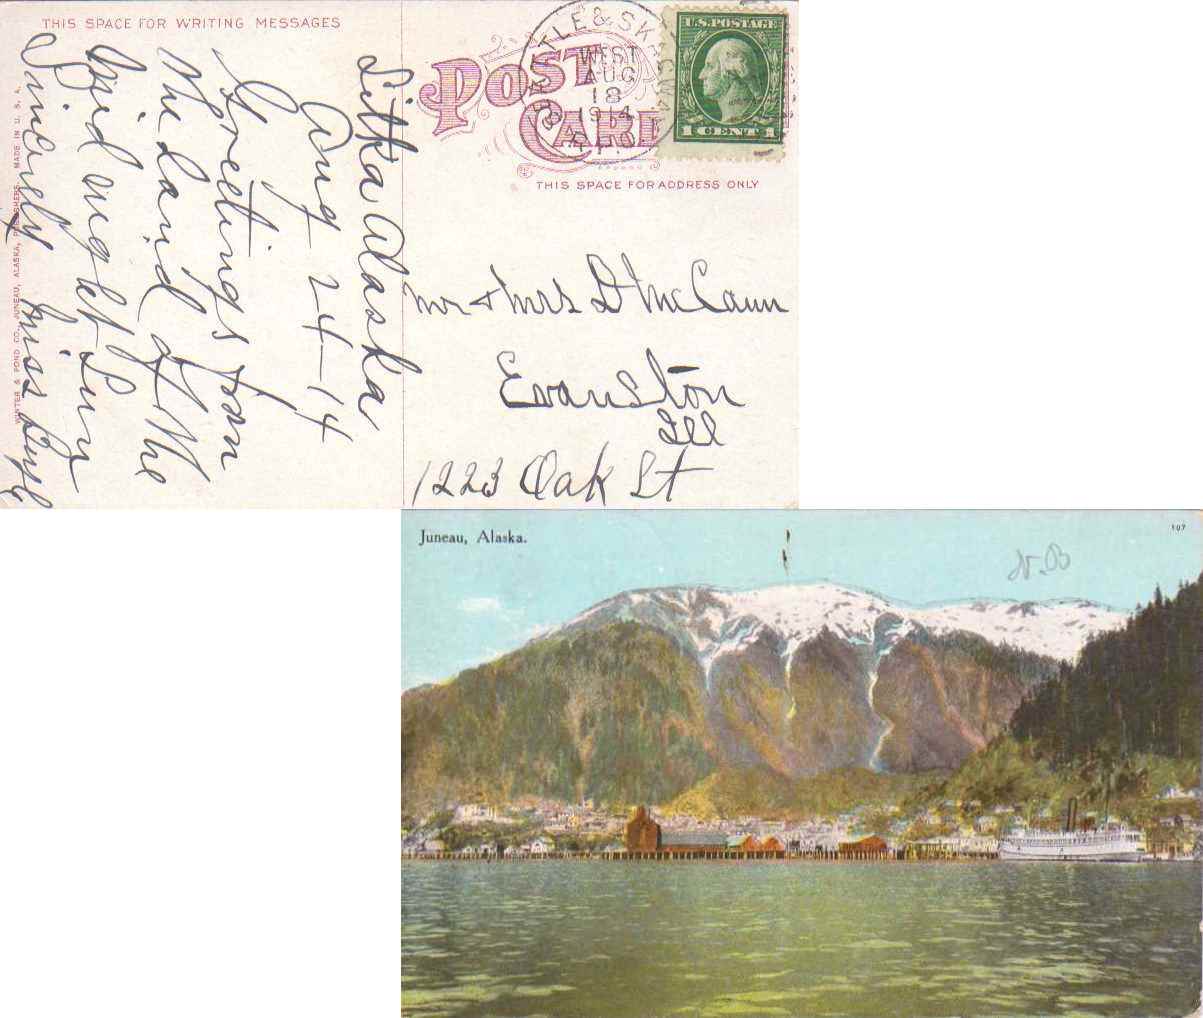 THIS SPACE FOR WRITING MESSAGES
Sitka Alaska
Aug 24-14
Greetings from
the land of the
Mid night Sun
Sincerely Miss
WINTER & POND CO., JUNEAU, ALASKA, PUBLISHERS. MADE IN U. S. A.
POST CARD
SEATTLE & SKAGWAY
WEST
AUG
18
1914
R.P.O.
U.S. POSTAGE
1 CENT 1
THIS SPACE FOR ADDRESS ONLY
Mr & Mrs D McCann
Evanston
Ill
1223 Oak St
Juneau, Alaska.
107